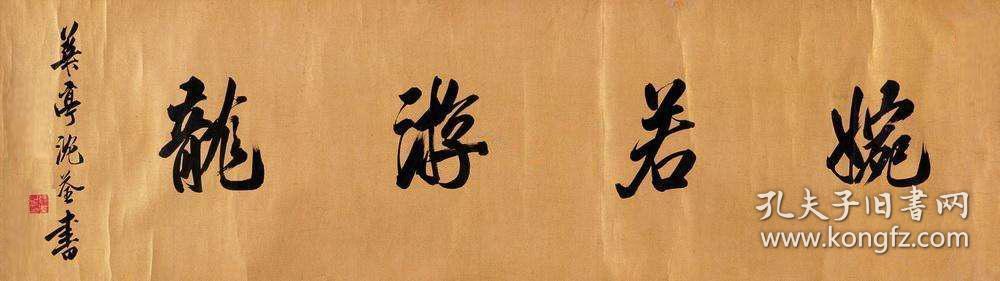 婉若游龍
蘋亭沈荃書
孔夫子旧書网
www.kongfz.com